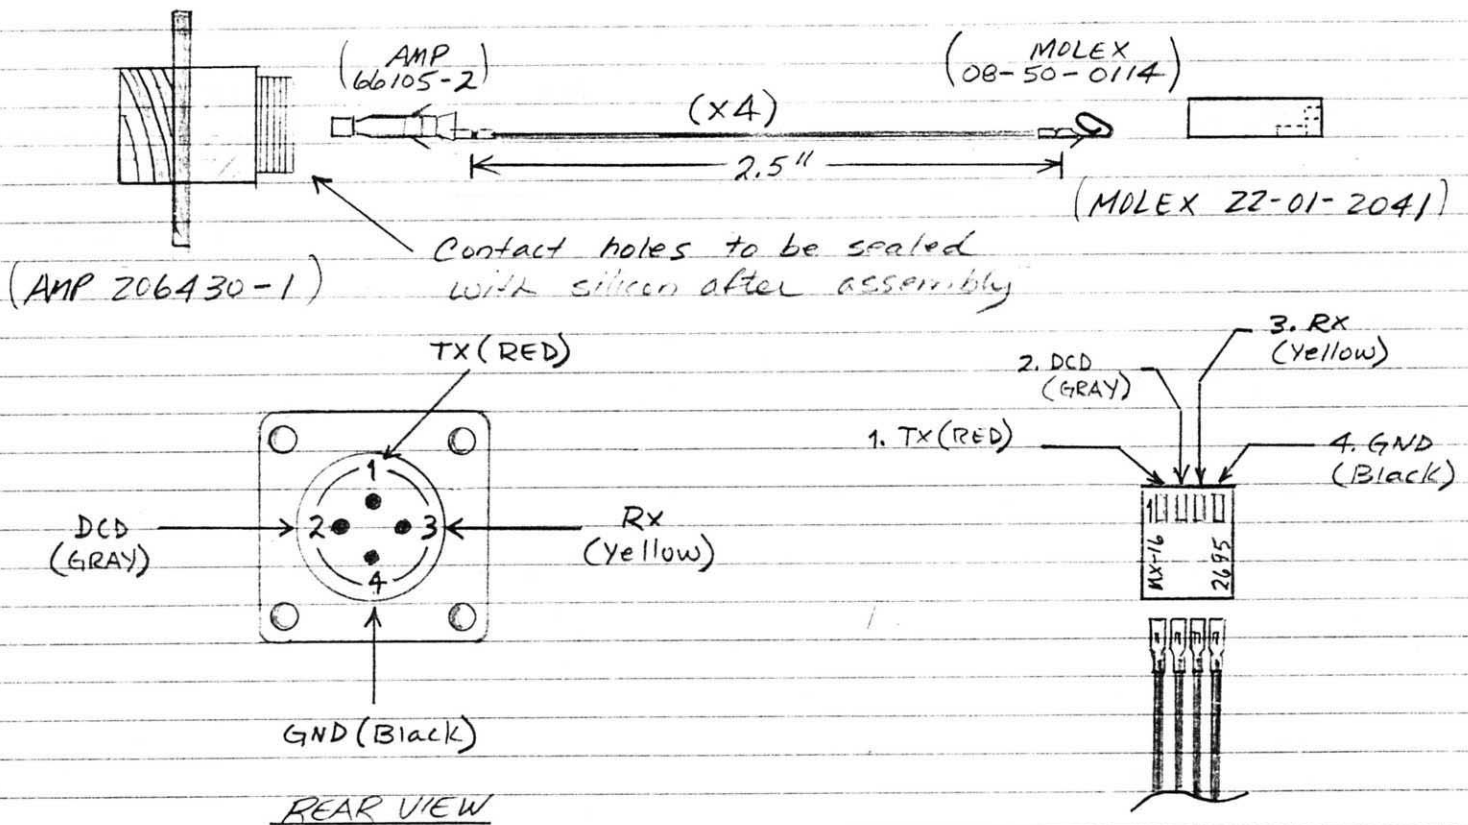 (AMP
66105-2)
(MOLEX
08-50-0114)
(x4)
2.5"
(MOLEX 22-01-2041)
(AMP 206430-1)
Contact holes to be sealed
with silicon after assembly
TX (RED)
1
DCD
(GRAY)
2
3
Rx
(Yellow)
4
GND (Black)
REAR VIEW
3. RX
(Yellow)
2. DCD
(GRAY)
1. TX (RED)
4. GND
(Black)
1
MX-16
2695